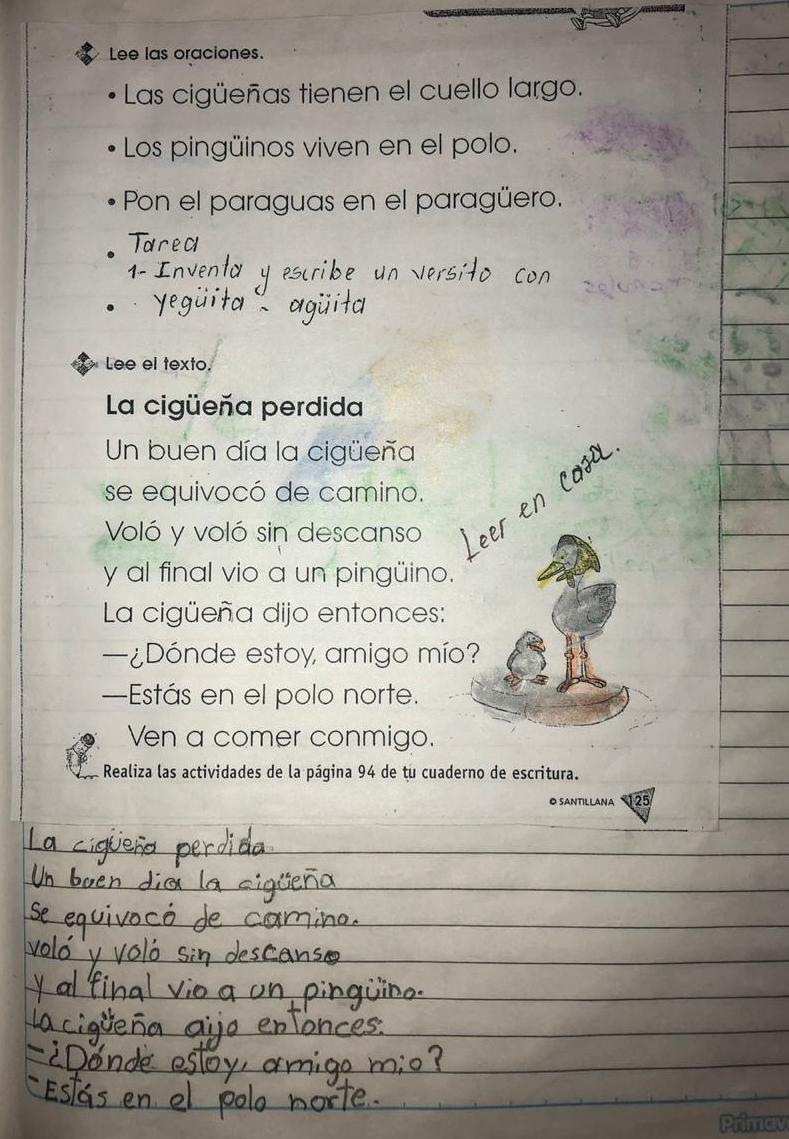 Lee las oraciones.
• Las cigüeñas tienen el cuello largo.
• Los pingüinos viven en el polo.
• Pon el paraguas en el paragüero.
• Tarea
1- Inventa y escribe un versito con
• yegüita - agüita
Lee el texto.
La cigüeña perdida
Un buen día la cigüeña
se equivocó de camino.
Voló y voló sin descanso
y al final vio a un pingüino.
La cigüeña dijo entonces:
—¿Dónde estoy, amigo mío?
—Estás en el polo norte.
Ven a comer conmigo.
Leer en casa.
Realiza las actividades de la página 94 de tu cuaderno de escritura.
© SANTILLANA 125
La cigüeña perdida
Un buen dia la cigüeña
se equivocó de camino.
voló y voló sin descanso
y al final vio a un pingüino.
La cigüeña dijo entonces:
-¿Dónde estoy, amigo mio?
-Estás en el polo norte.
Primav